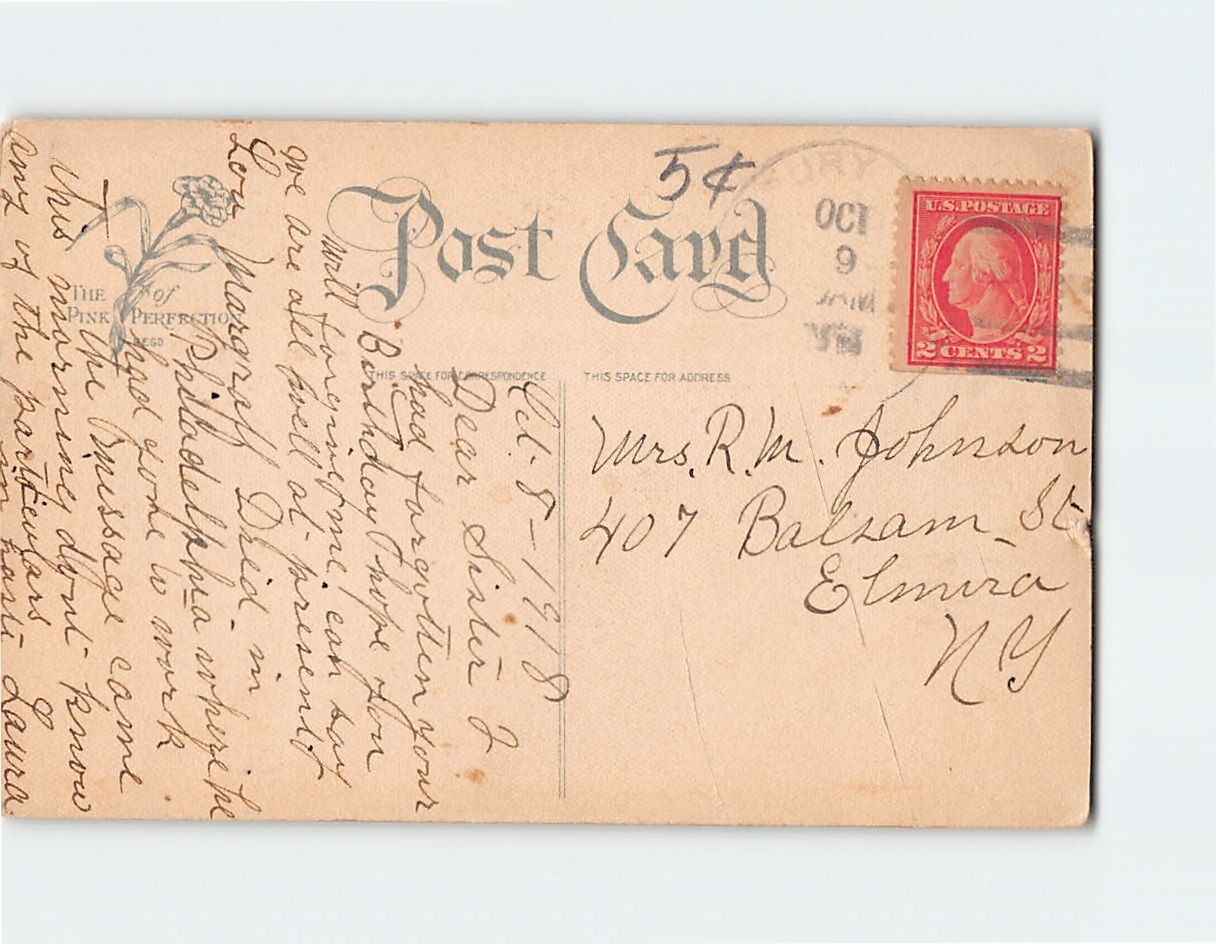 5¢
Post Card
URY
OCT
9
AM
U.S. POSTAGE
2 CENTS 2
THE
PINK of PERFECTION
REGD
THIS SPACE FOR CORRESPONDENCE
THIS SPACE FOR ADDRESS
Mrs. R. M. Johnson
407 Balsam St
Elmira
N Y
Oct. 8 - 1918
Dear Sister I
had forgotten your
Birthday I hope you
will forgive me, can say
we are all well at present
Lou Margraff Dried in
Philadelphia where he
hyd gone to work
the Missage came
this morning dont know
any of the particulars
in haste Laura